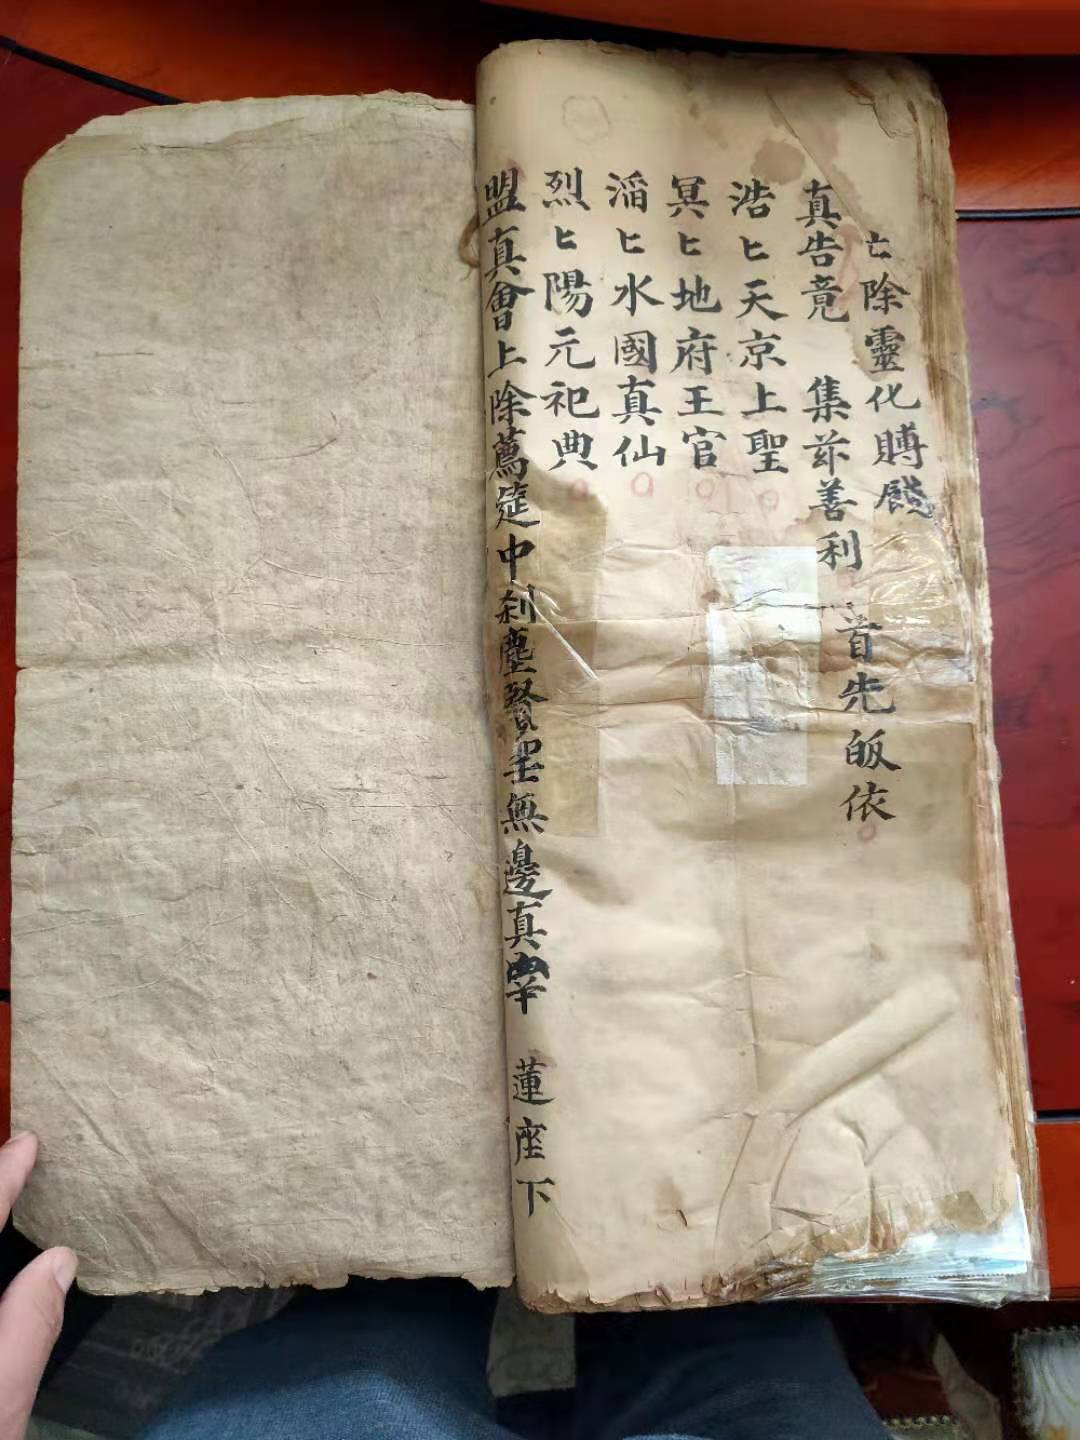 亡除靈化賻
真告竟 集茲善利 首先皈依
浩匕天京上聖
冥匕地府王官
滔匕水國真仙
烈匕陽元祀典
盟真會上除薦筵中刹塵賢聖無邊真宰 蓮座下